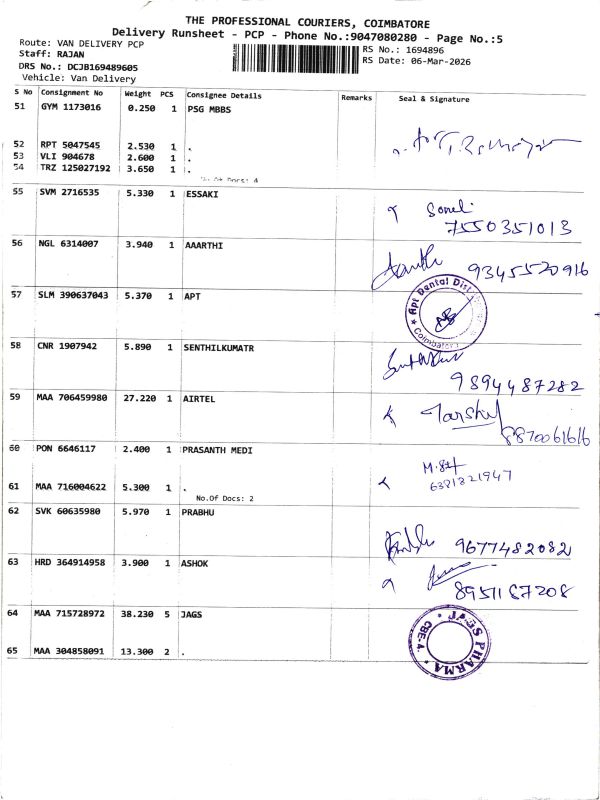 THE PROFESSIONAL COURIERS, COIMBATORE
Delivery Runsheet - PCP - Phone No.:9047080280 - Page No.:5
Route: VAN DELIVERY PCP
RS No.: 1694896
Staff: RAJAN
RS Date: 06-Mar-2026
DRS No.: DCJB169489605
Vehicle: Van Delivery
S No Consignment No Weight PCS Consignee Details Remarks Seal & Signature
51 GYM 1173016 0.250 1 PSG MBBS
52 RPT 5047545 2.530 1 .
53 VLI 904678 2.600 1 .
54 TRZ 125027192 3.650 1 .
No.Of Docs: 4
55 SVM 2716535 5.330 1 ESSAKI
7550351013
56 NGL 6314007 3.940 1 AAARTHI
9345520916
57 SLM 390637043 5.370 1 APT
Apt Dental Dist
Coimbatore
58 CNR 1907942 5.890 1 SENTHILKUMATR
9894487282
59 MAA 706459980 27.220 1 AIRTEL
8870061616
60 PON 6646117 2.400 1 PRASANTH MEDI
6381321947
61 MAA 716004622 5.300 1 .
No.Of Docs: 2
62 SVK 60635980 5.970 1 PRABHU
9677482082
63 HRD 364914958 3.900 1 ASHOK
8951167208
64 MAA 715728972 38.230 5 JAGS
JAGS PHARMA
CBE-4.
65 MAA 304858091 13.300 2 .